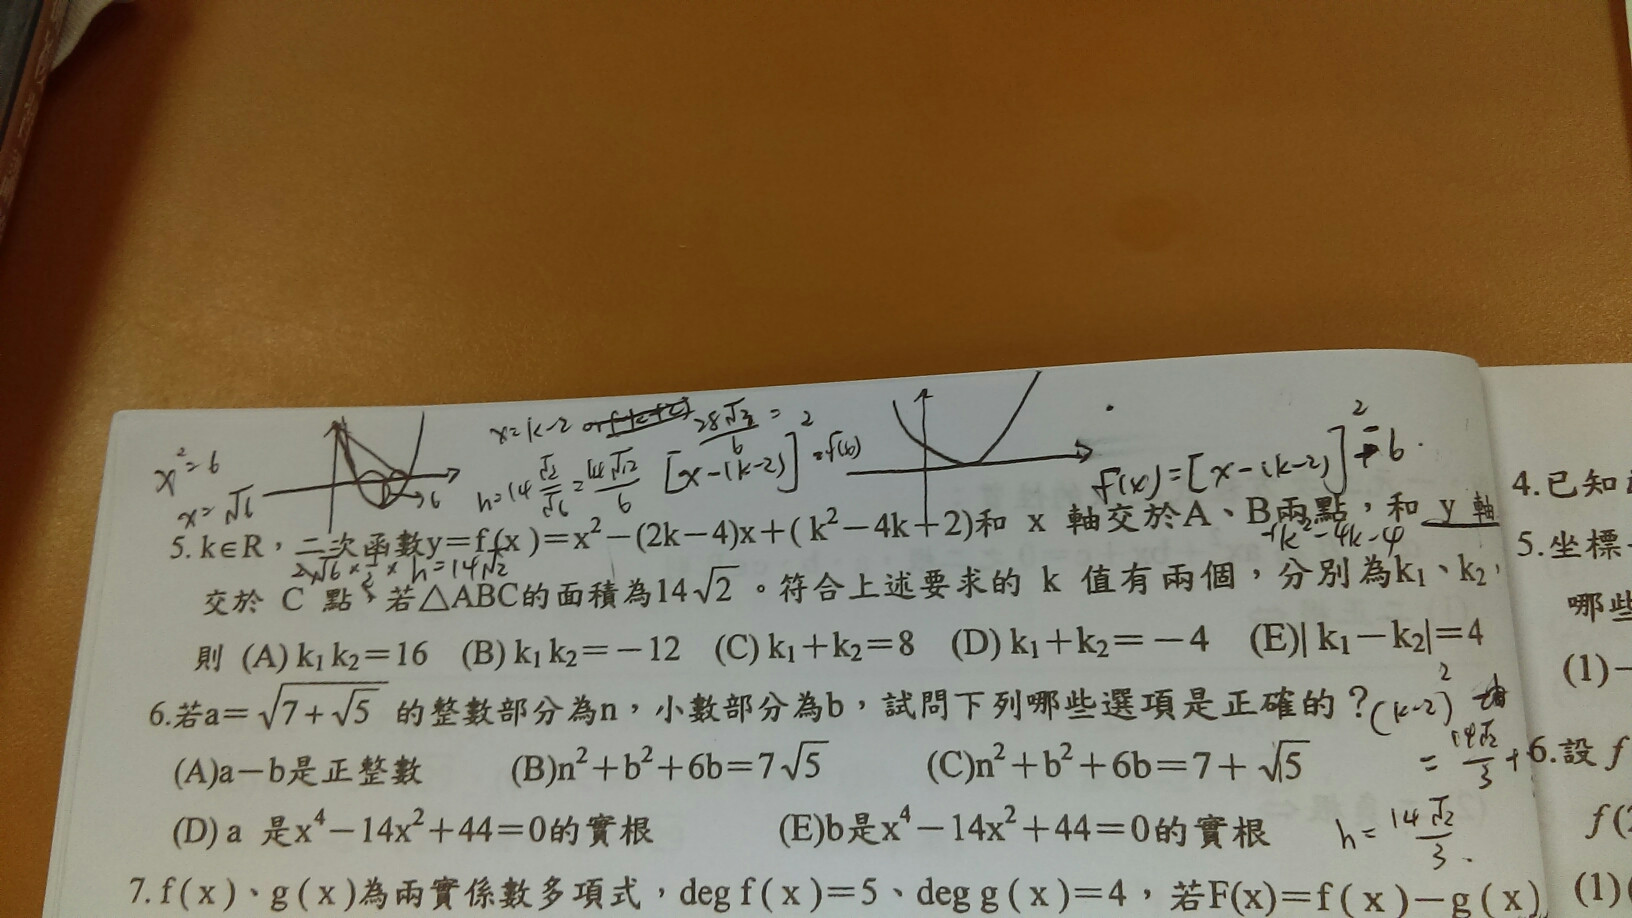 x²=6
x=√6
→6
x=k-2
28√3/6 =
h=14 √2/√6 = 14√12/6
[x-(k-2)]²=f(6)
f(x)=[x-(k-2)]²-6.
5. k∈R，二次函數y=f(x)=x²-(2k-4)x+(k²-4k+2)和 x 軸交於A、B兩點，和 y 軸
2√6 × 1/2 × h=14√2
k²-4k-4
交於 C 點，若△ABC的面積為14√2。符合上述要求的 k 值有兩個，分別為k₁、k₂，
則 (A) k₁k₂=16 (B) k₁k₂=-12 (C) k₁+k₂=8 (D) k₁+k₂=-4 (E)|k₁-k₂|=4
6.若a=√(7+√5) 的整數部分為n，小數部分為b，試問下列哪些選項是正確的？
(k-2)²
= 14√2/3 +6
(A)a-b是正整數 (B)n²+b²+6b=7√5 (C)n²+b²+6b=7+√5
(D) a 是x⁴-14x²+44=0的實根 (E)b是x⁴-14x²+44=0的實根
h= 14√2/3.
7. f(x)、g(x)為兩實係數多項式，deg f(x)=5、deg g(x)=4，若F(x)=f(x)-g(x)
4.已知
5.坐標
哪些
(1)-
6.設 f
f(2
(1)